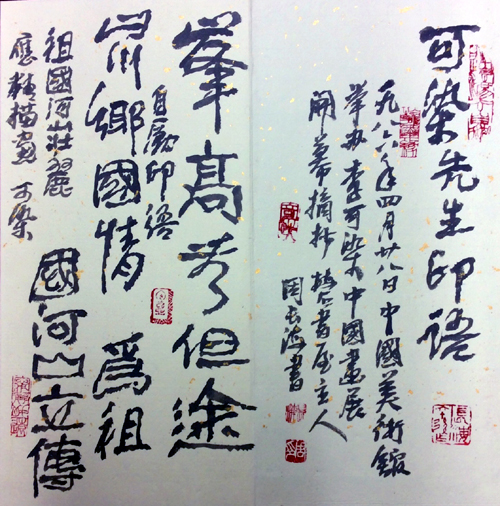 可染先生印语
一九八六年四月廿八日中國美術館
举办李可染中國畫展
開幕摘抄 書屋主人
長海書
峯高无坦途
自勵印语
鄉國情 為祖
國河山立傳
祖國河山壯麗
應精描畫 可染